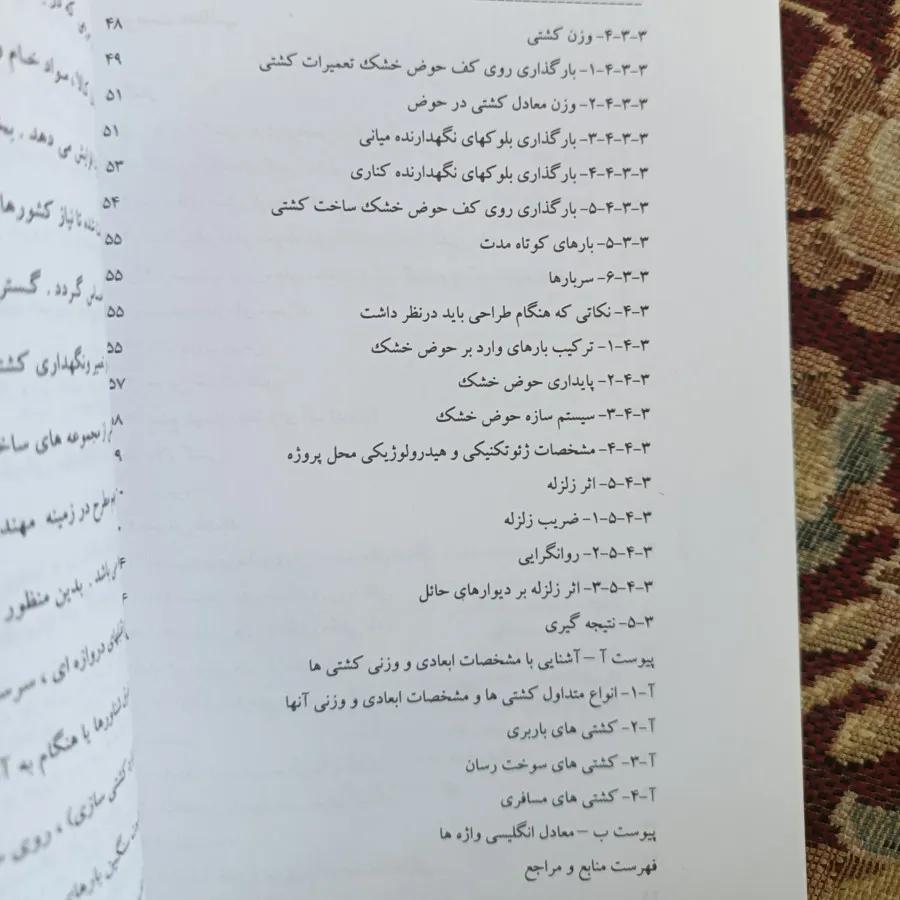 ۳-۳-۴- وزن کشتی ۴۸
۳-۳-۴-۱- بارگذاری روی کف حوض خشک تعمیرات کشتی ۴۹
۳-۳-۴-۲- وزن معادل کشتی در حوض ۵۱
۳-۳-۴-۳- بارگذاری بلوکهای نگهدارنده میانی ۵۱
۳-۳-۴-۴- بارگذاری بلوکهای نگهدارنده کناری ۵۳
۳-۳-۴-۵- بارگذاری روی کف حوض خشک ساخت کشتی ۵۴
۳-۳-۵- بارهای کوتاه مدت ۵۵
۳-۳-۶- سربارها ۵۵
۳-۴- نکاتی که هنگام طراحی باید درنظر داشت ۵۵
۳-۴-۱- ترکیب بارهای وارد بر حوض خشک ۵۵
۳-۴-۲- پایداری حوض خشک ۵۷
۳-۴-۳- سیستم سازه حوض خشک
۳-۴-۴- مشخصات ژئوتکنیکی و هیدرولوژیکی محل پروژه
۳-۴-۵- اثر زلزله
۳-۴-۵-۱- ضریب زلزله
۳-۴-۵-۲- روانگرایی
۳-۴-۵-۳- اثر زلزله بر دیوارهای حائل
۳-۵- نتیجه گیری
پیوست آ – آشنایی با مشخصات ابعادی و وزنی کشتی ها
آ-۱- انواع متداول کشتی ها و مشخصات ابعادی و وزنی آنها
آ-۲- کشتی های باربری
آ-۳- کشتی های سوخت رسان
آ-۴- کشتی های مسافری
پیوست ب – معادل انگلیسی واژه ها
فهرست منابع و مراجع
کالا، مواد خام
می دهد .
تا نیاز کشورها
گردد .
ونگهداری
مجموعه های
طرح در زمینه
باشد . بدین منظور
دروازه ای ،
یا هنگام به
کشتی سازی) ، روی